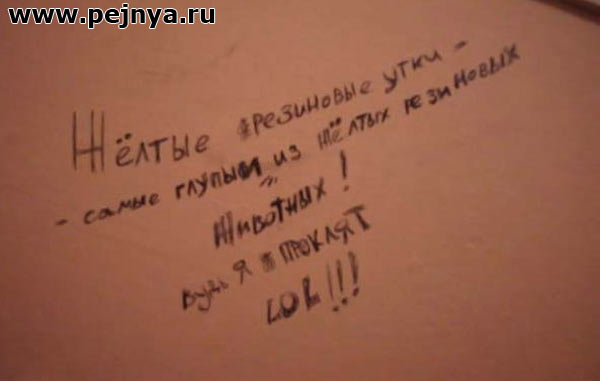 www.pejnya.ru
Жёлтые резиновые утки -
- самые глупыи из жёлтых резиновых
животных!
Будь я проклят
LOL!!!